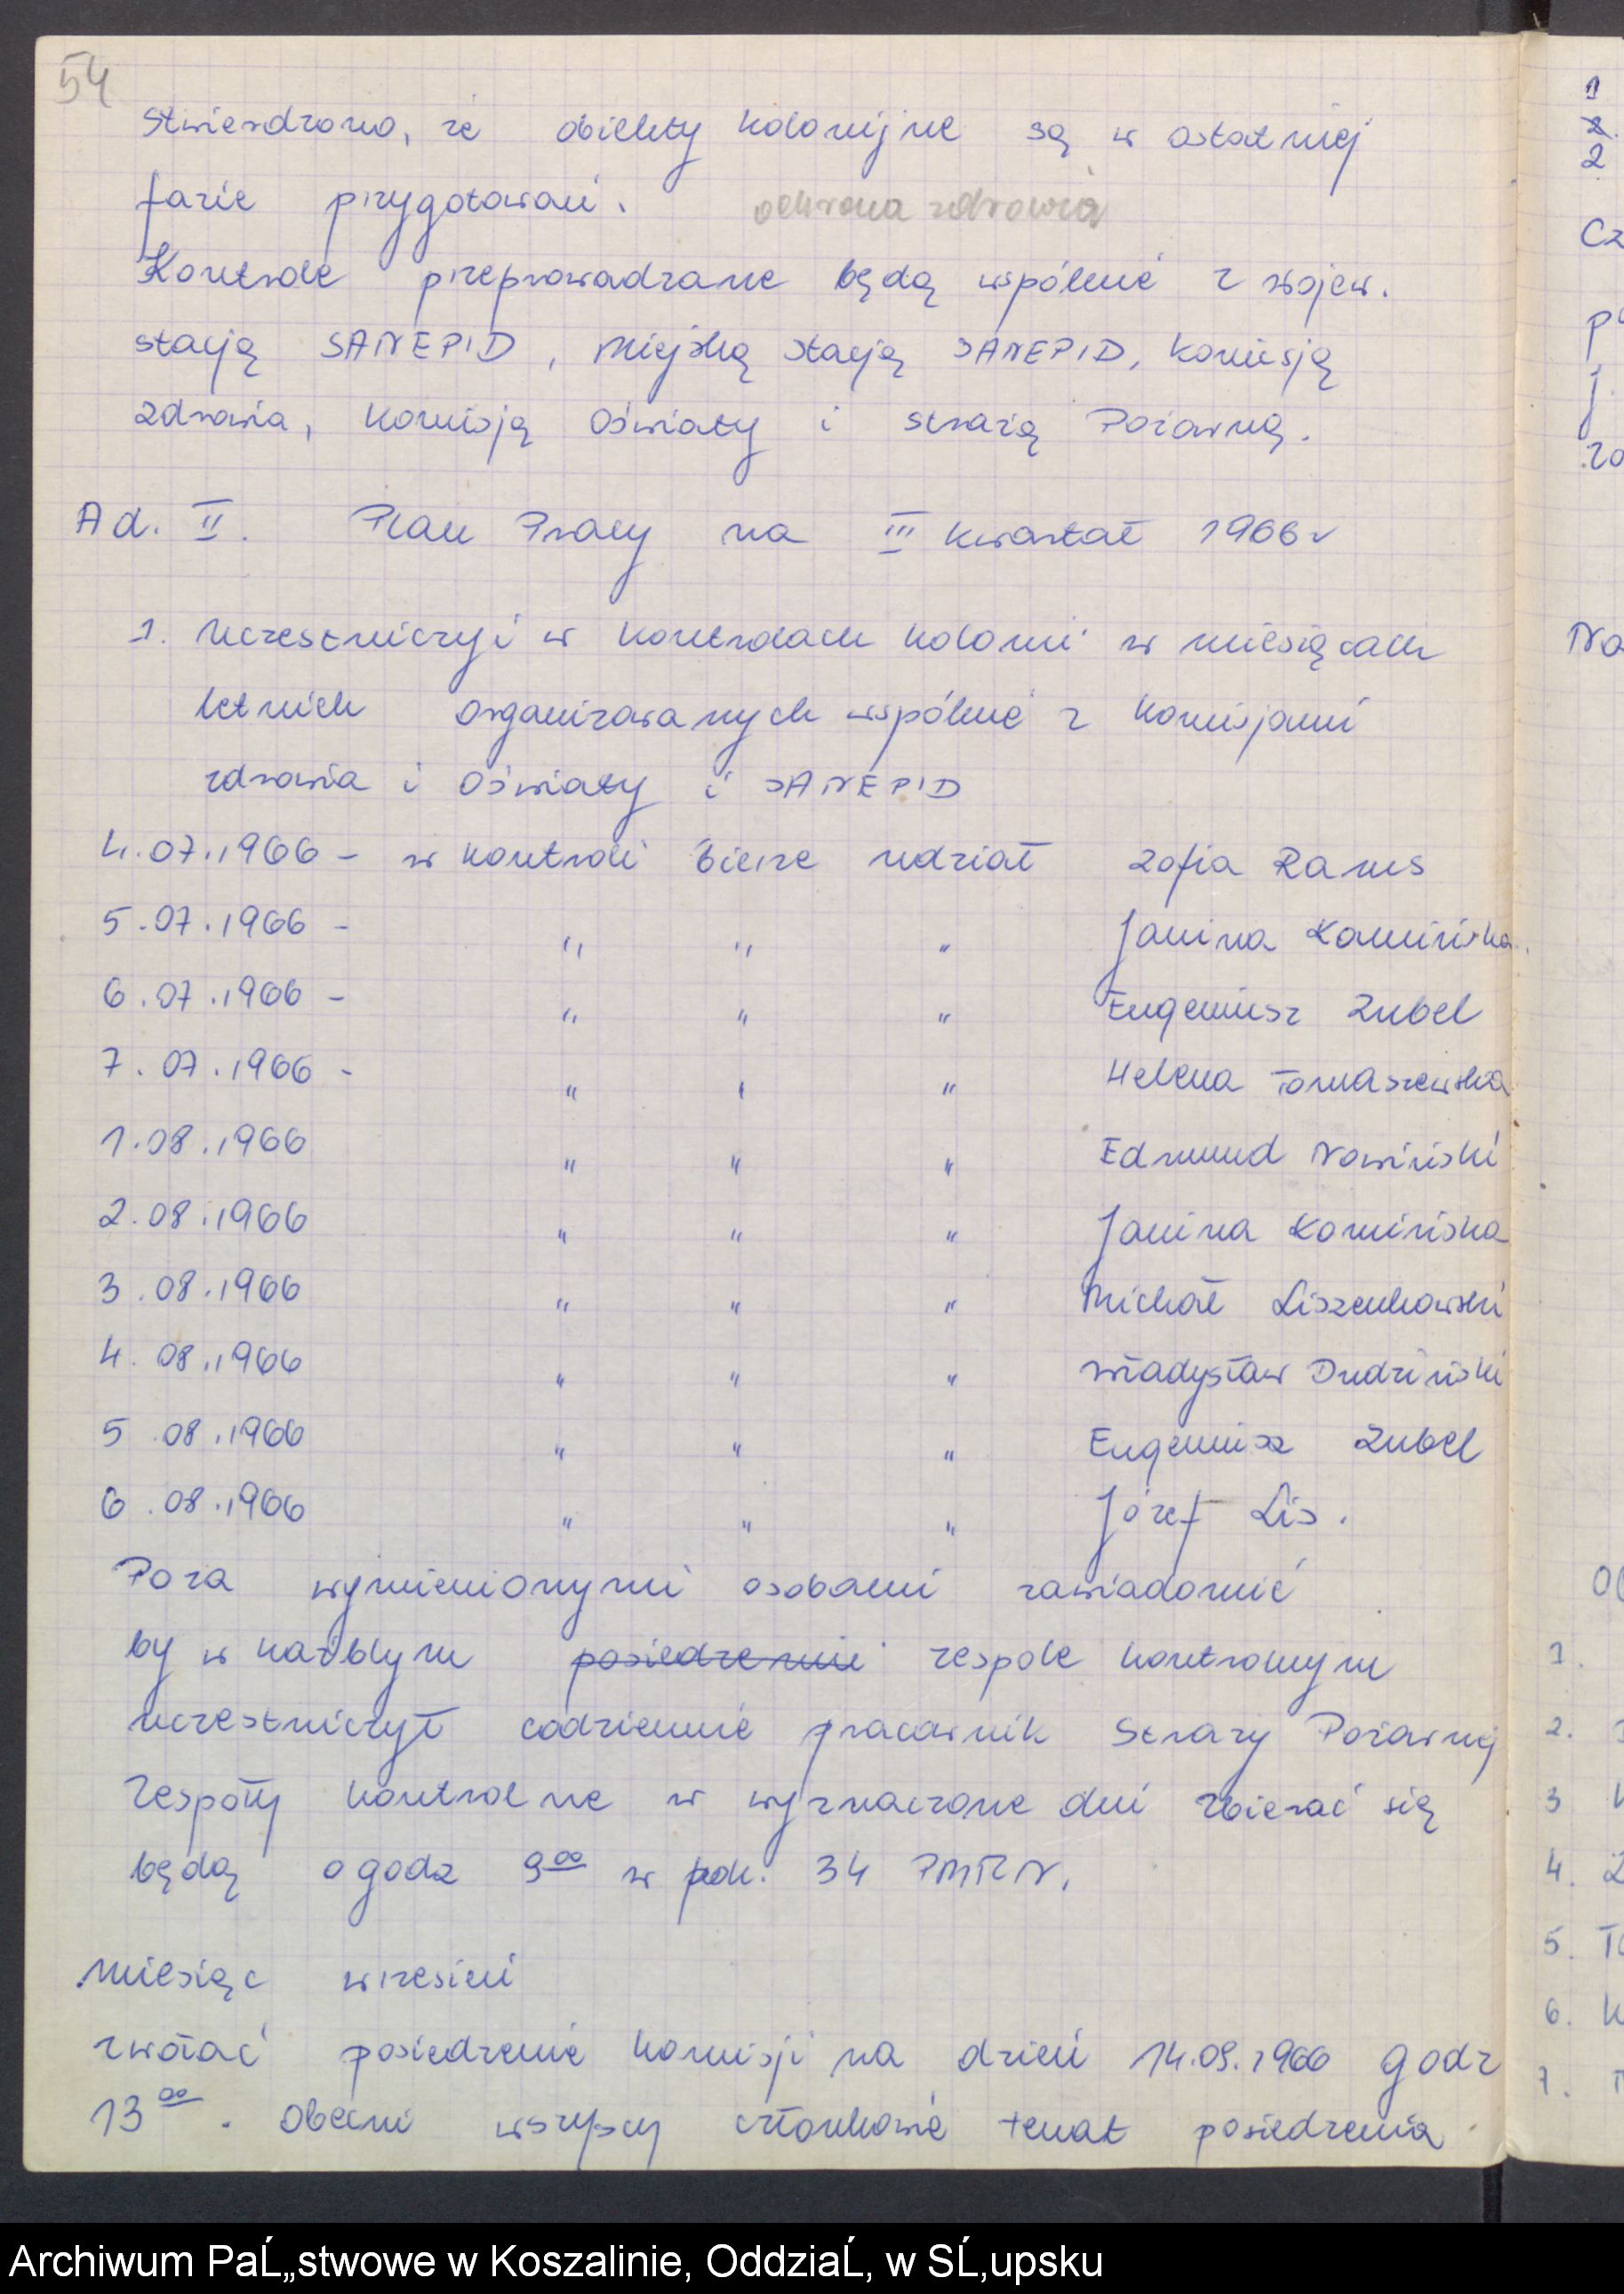 54
stwierdzono, że obiekty kolonijne są w ostatniej
fazie przygotowań.
ochrona zdrowia
Kontrole przeprowadzane będą wspólnie z wojew.
stacją SANEPID, Miejską stacją SANEPID, Komisją
Zdrowia, Komisją Oświaty i strażą Pożarną.
Ad. II. Plan Pracy na III kwartał 1966 r
1. Uczestniczyć w kontrolach kolonii w miesiącach
letnich organizowanych wspólnie z komisjami
zdrowia i Oświaty i SANEPID
4.07.1966 - w kontroli bierze udział Zofia Rams
5.07.1966 - " " " Janina Kamińska
6.07.1966 - " " " Eugeniusz Zubel
7.07.1966 - " " " Helena Tomaszewska
1.08.1966 " " " Edmund Nowiński
2.08.1966 " " " Janina Kamińska
3.08.1966 " " " Michał Liszenkowski
4.08.1966 " " " Władysław Dudziński
5.08.1966 " " " Eugeniusz Zubel
6.08.1966 " " " Józef Lis.
Poza wymienionymi osobami zawiadomić
by w każdym posiedzeniu zespole kontrolnym
uczestniczył codziennie pracownik Straży Pożarnej
Zespoły kontrolne w wyznaczone dni zbierać się
będą o godz 9 00 w pok. 34 PMRN.
Miesiąc wrzesień
zwołać posiedzenie komisji na dzień 14.09.1966 godz
13 00. Obecni wszyscy członkowie temat posiedzenia
1
2.
2
Cz
j
zo
Na
1.
2.
3
4.
5.
6.
7.
Archiwum PaĹ„stwowe w Koszalinie, OddziaĹ‚ w SĹ‚upsku